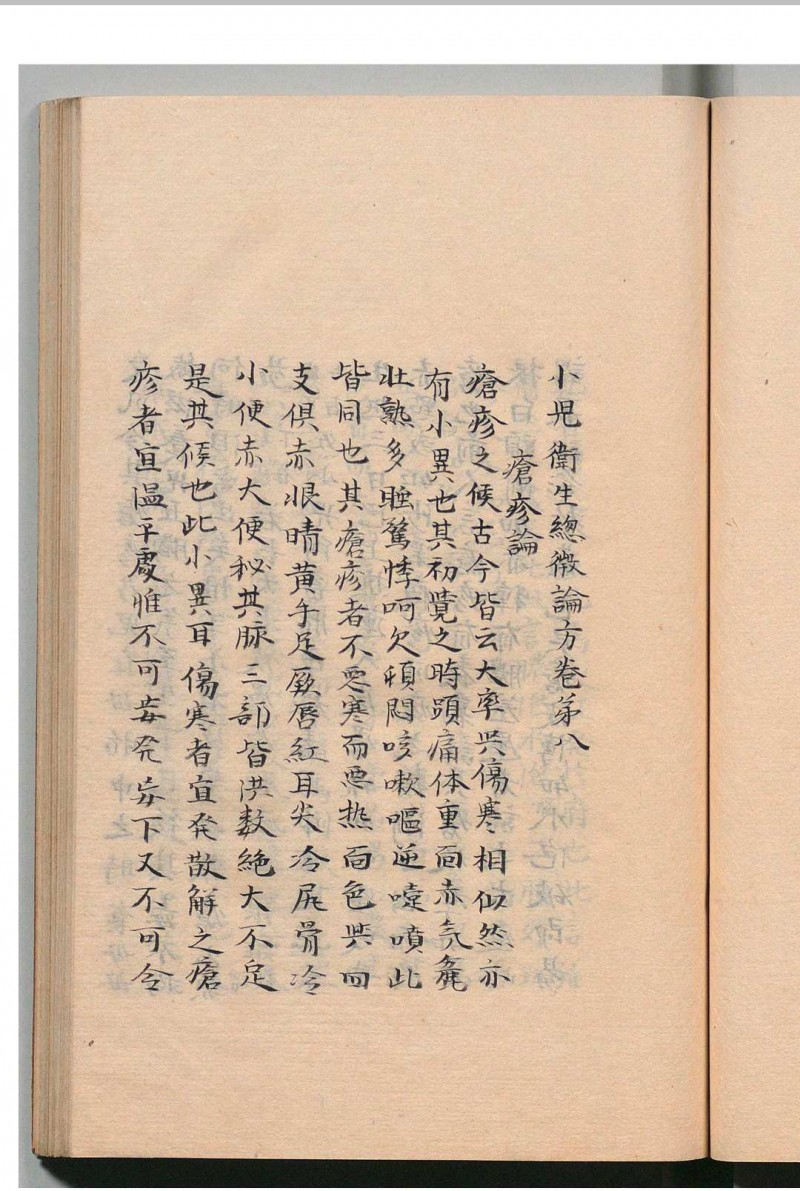 小児衛生總微論方卷第八
瘡疹論
瘡疹之候古今皆云大率与傷寒相似然亦
有小異也其初覺之時頭痛体重面赤气麁
壯熟多睡驚悸呵欠頓悶咳嗽嘔逆嚏噴此
皆同也其瘡疹者不惡寒而惡热面色与四
支俱赤眼睛黄手足厥唇紅耳尖冷尻骨冷
小便赤大便秘其脉三部皆洪数絶大不定
是其候也此小異耳傷寒者宜発散解之瘡
疹者宜温平處惟不可妄発妄下又不可令